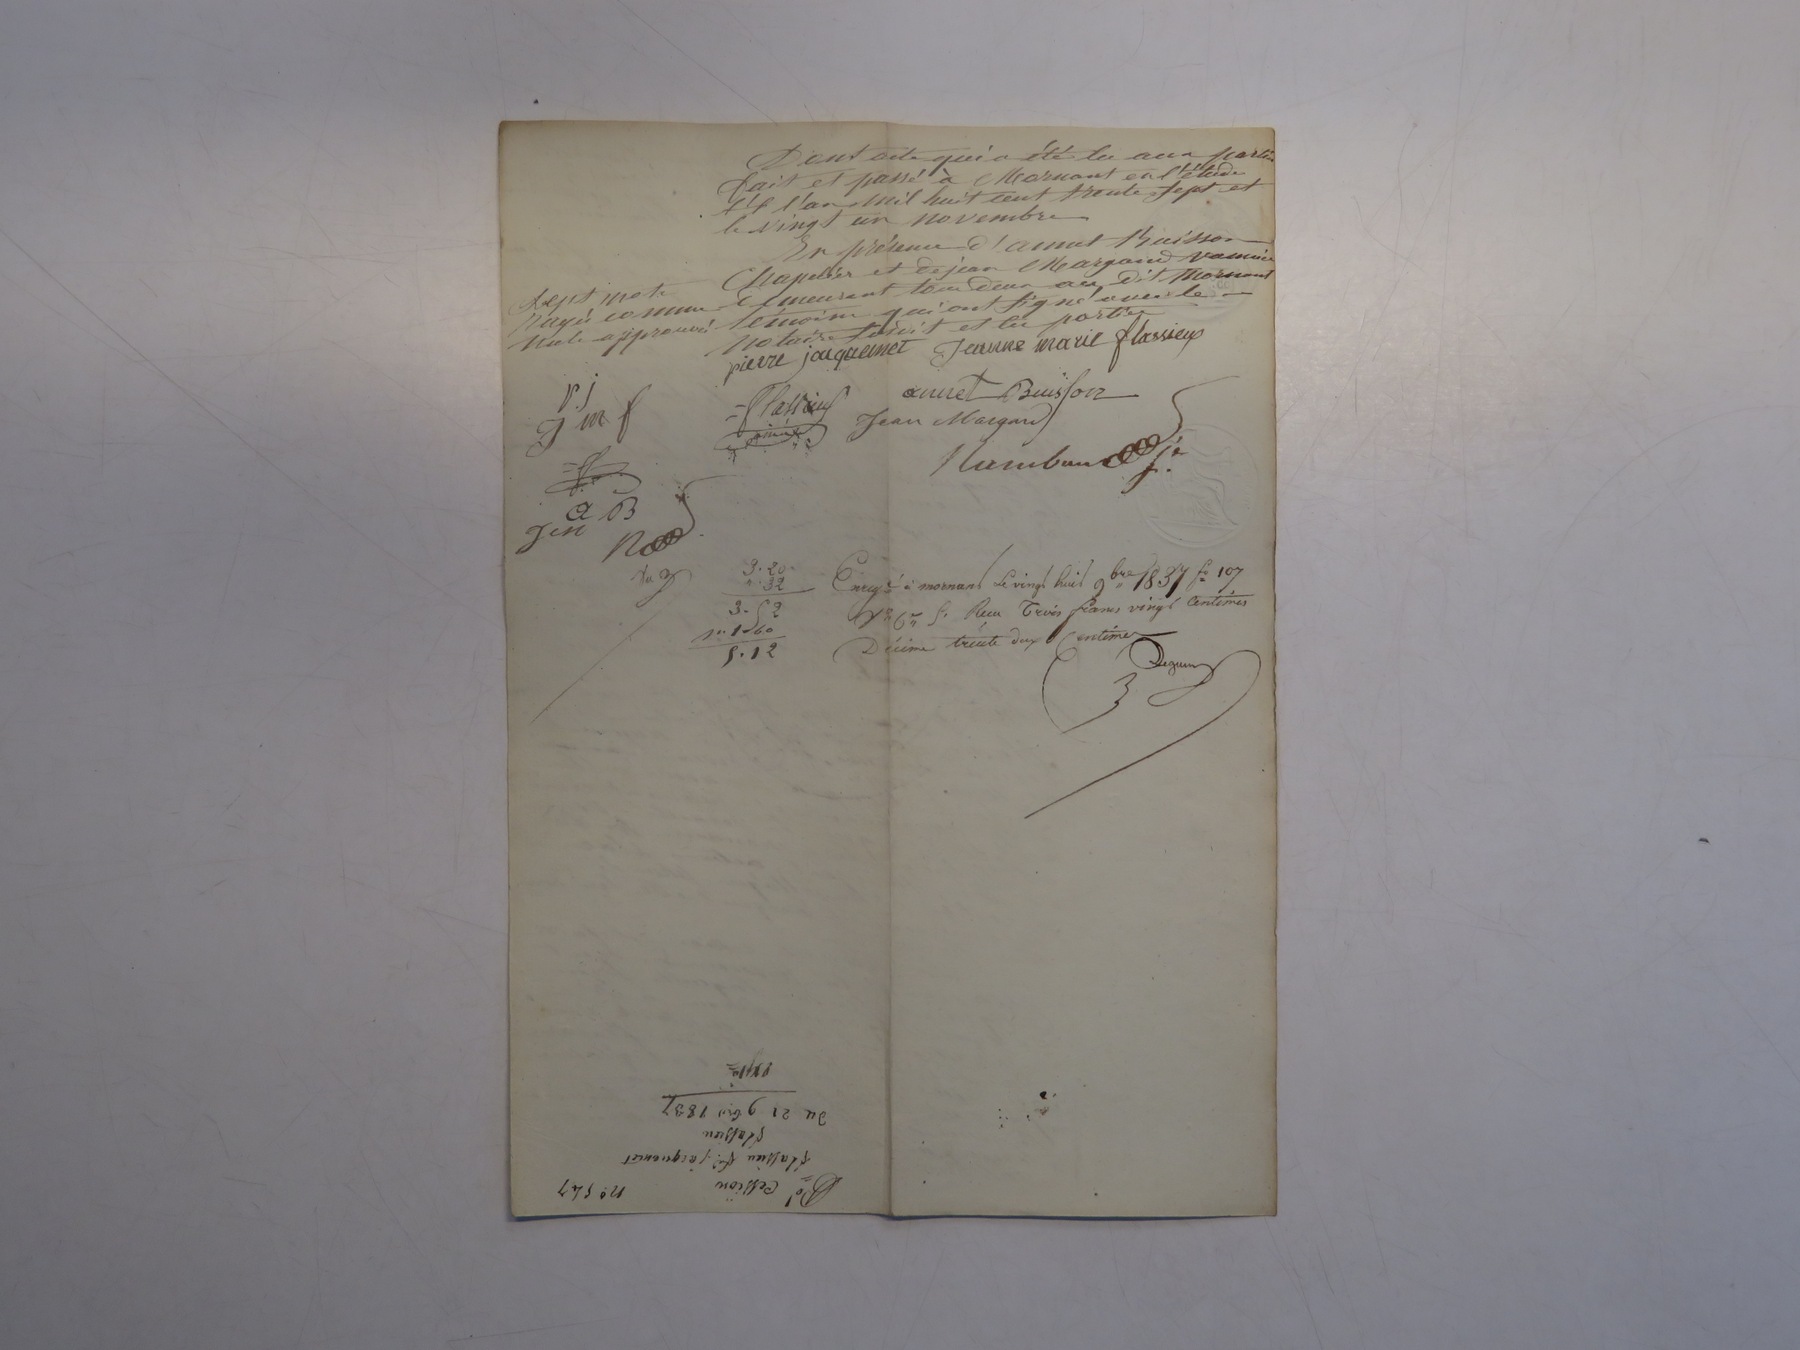 Dont acte qui a été lu aux parties
fait et passé à Mornant en l'étude
l'an mil huit cent trente sept et
le vingt un novembre
En présence d'annet Buisson
Chapelier et de jean Margand vannier
demeurant tous deux au dit Mornant
témoins qui ont signé avec le
notaire et les parties
Sept mots
Rayés comme
nuls approuvés
pierre jacquemet Jeanne marie flassieux
p. j
J m f
flassieux
annet Buisson
Jean Margand
a B
J m
3. 20
32
3. 52
1. 60
5. 12
Enregé à mornant le vingt huit 9bre 1837 fo 107
Vo Co 5. Recu Trois francs vingt Centimes
Décime trente deux Centimes
No 547
Cession
flassieu fe jacquemet
flassieu
du 21 9bre 1837